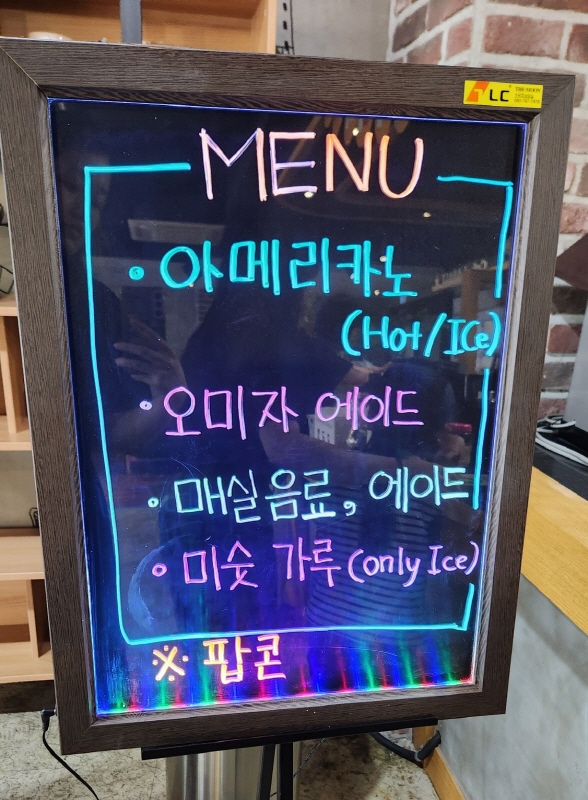 LC
MENU
• 아메리카노
(Hot/Ice)
• 오미자 에이드
• 매실음료, 에이드
• 미숫가루 (only Ice)
※ 팝콘